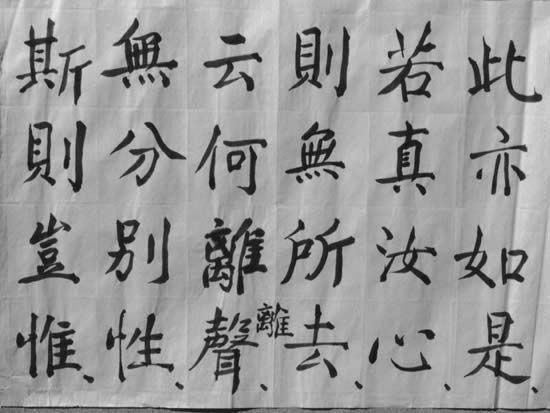 此亦如是、
若真汝心、
則無所去、
云何離聲、
離
無分別性、
斯則豈惟、